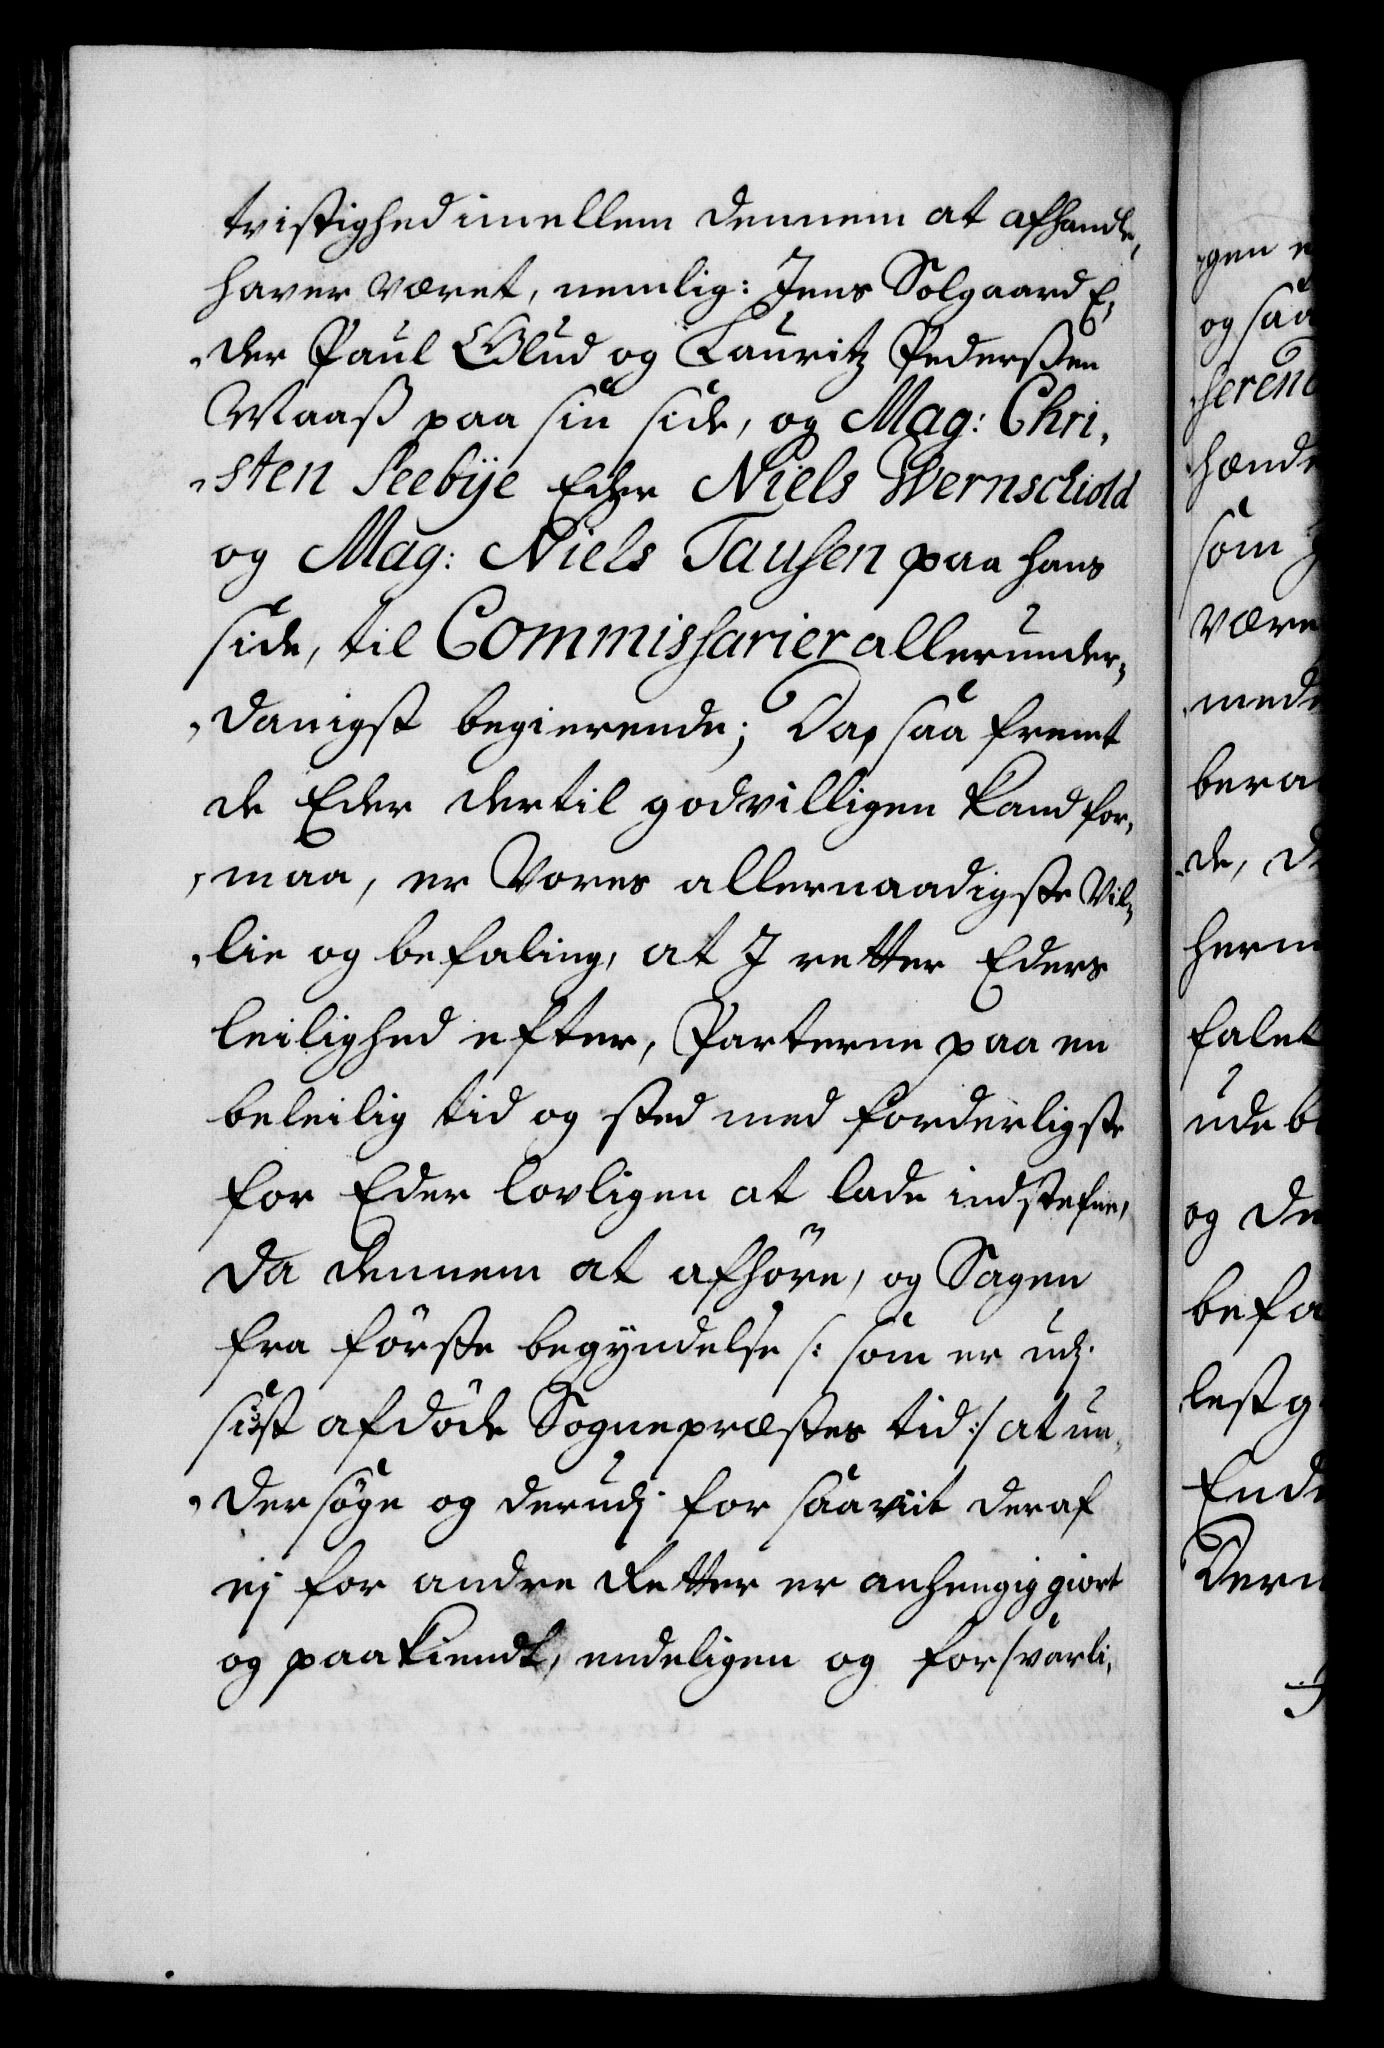 tvistighed imellem dennem at afhandle,
haver været, nemlig: Jens Solgaard E,
„der Paul Glud og Lauritz Pederssen
Maaß paa sin side, og Mag: Chri,
„sten Seebÿe Eder Niels Wernschiold
og Mag: Niels Tausen paa hans
side, til Commissarier allerunder„
„danigst begierende; Da, saa fremt
de Eder dertil godvilligen kand for„
„maa, er Vores allernaadigste Vil„
„lie og befaling, at I retter Eders
leilighed efter, Parterne paa en
beleilig tid og sted med forderligste
for Eder lovligen at lade indstefne,
da dennem at afhöre, og Sagen
fra förste begyndelse /: som er udj
sidst afdöde Sognepræstes tid :/ at un„
„dersöge og derudj for saavit deraf
ej for andre Retter er anhengig giort
og paakiendt, endeligen og forsvarli„
gen
og saa
hænd
som
være
med
bera
de, d
herm
falet
ude b
og de
befa
lest g
Ende
Der